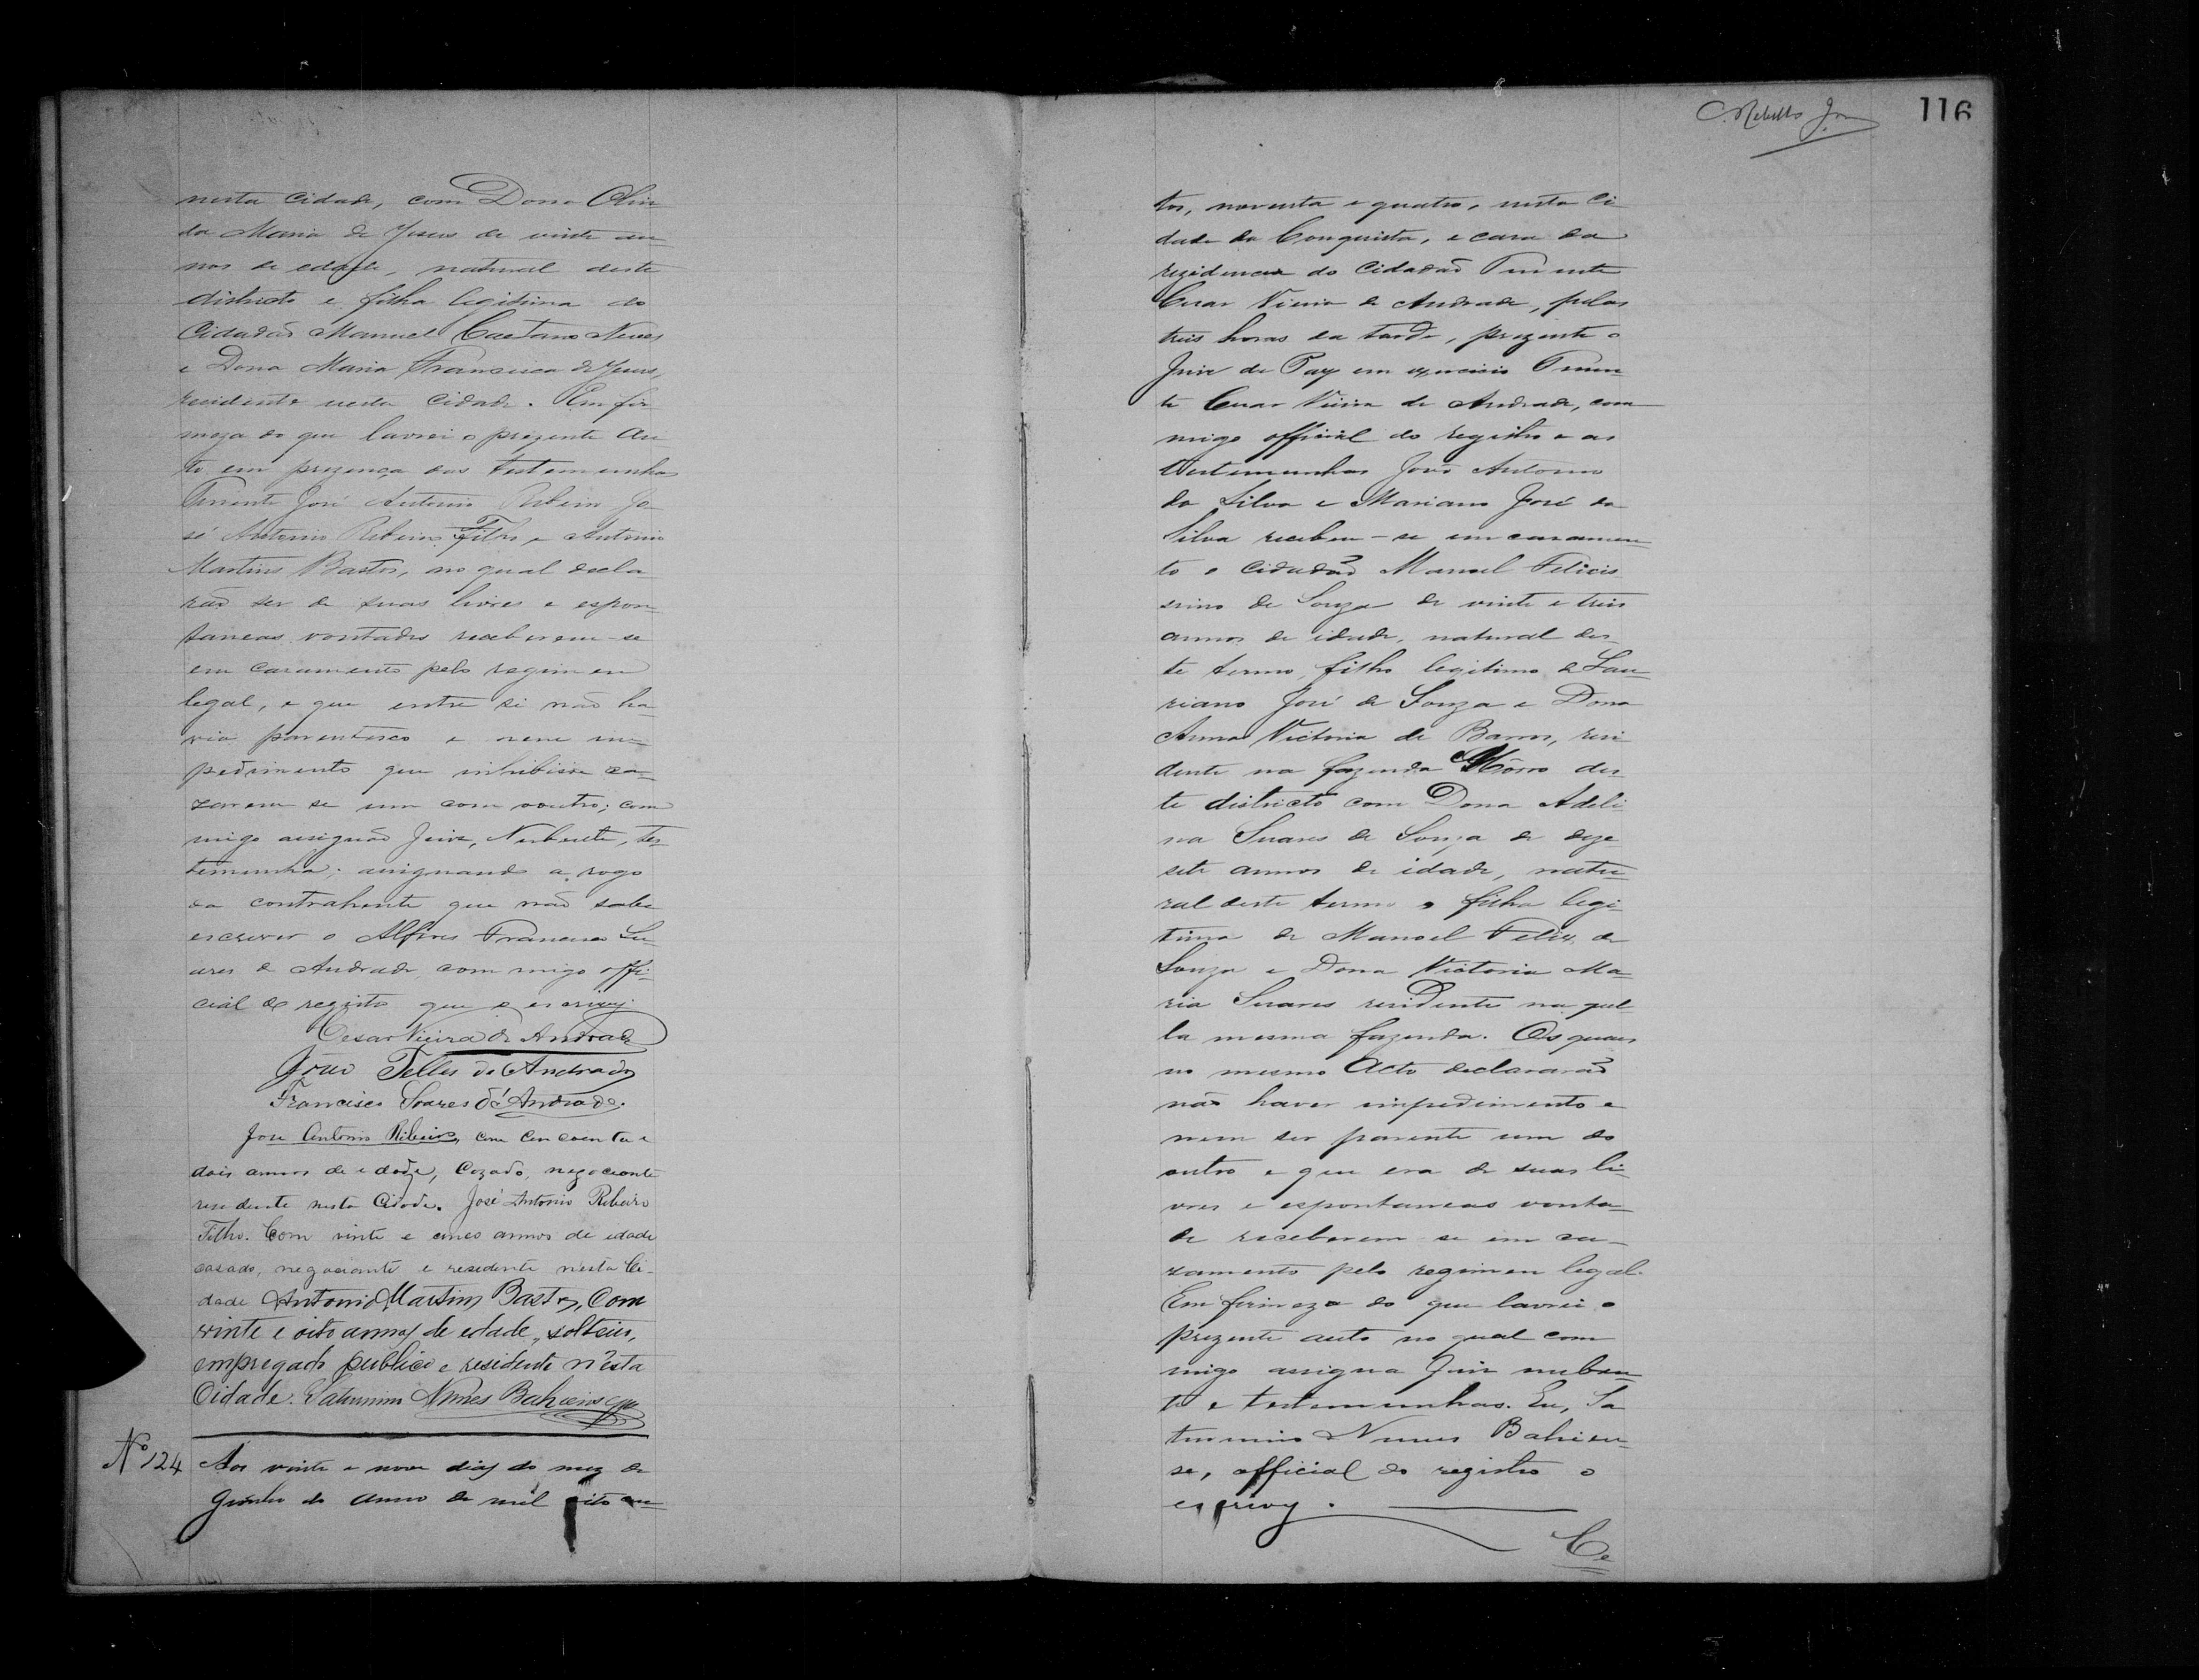 nesta Cidade, com Dona Olin-
da Maria de Jesus de vinte an
nos de edade, natural deste
districto e filha legitima do
Cidadão Manuel Caetano Neves
e Dona Maria Francisca de Jesus,
residente nesta Cidade. Em fir
meza do que lavrei o prezente au
to em prezença das testemunhas
Tenente José Antonio Ribeiro Jo
sé Antonio Ribeiro Filho e Antonio
Martins Bastos, no qual decla
rão ser de suas livres e espon
taneas vontades receberem-se
em casamento pelo regimen
legal, e que entre si não ha-
via parentesco e nem im-
pedimento que inhibisse ca-
zarem se um com outro; com
migo assignão Juiz, Nubente, tes
temunha; assignando a rogo
da contrahente que não sabe
escrever o Alferes Francisco Su-
ares de Andrade, com migo offi-
cial do registo que o escrivy.
Cesar Vieira de Andrade
João Telles de Andrade
Francisco Soares de Andrade.
José Antonio Ribeiro, com cencoenta e
dois annos de edade, Cazado, negociante
residente nesta Cidade. José Antonio Ribeiro
Filho. Com vinte e cinco annos de edade
casado, negociante e residente nesta Ci-
dade Antonio Martins Bastos, Com
vinte e oito annos de edade, solteiro,
empregado publico e residente n'esta
Cidade. Saturnino Nunes Bahiense
Nº 124 Aos vinte e nove dias do mez de
Junho do anno de mil oito cen-
C. Rebello Jor
116
tos, noventa e quatro, nesta Ci
dade da Conquista, e casa da
rezidencia do Cidadão Tenente
Cesar Vieira de Andrade, pelas
tres horas da tarde, prezente o
Juiz de Paz em exercicio Tenen
te Cesar Vieira de Andrade, com
migo official do registro e as
testemunhas João Antonio
da Silva e Mariano José da
Silva recebeu-se em casamen
to o Cidadão Manoel Felicis
simo de Souza de vinte e tres
annos de idade, natural des
te termo, filho legitimo de Lau
riano José de Souza e Dona
Anna Victoria de Barros, resi
dente na fazenda Môrro des
te districto com Dona Adeli
na Suares de Souza de deze
sete annos de idade, natu-
ral deste termo e filha legi-
tima de Manoel Felix de
Souza e Dona Victoria Ma-
ria Suares residente na quel
la mesma fazenda. Os quaes
no mesmo Acto declararão
não haver impedimento e
nem ser parente um do
outro e que era de suas li-
vres e espontaneas vonta-
de receberem se em ca-
zamento pelo regimen legal.
Em firmeza do que lavrei o
prezente auto no qual com
migo assigna Juiz nuben-
te e testemunhas. Eu, Sa
turnino Nunes Bahien-
se, official do registro o
escrivy.
Ce